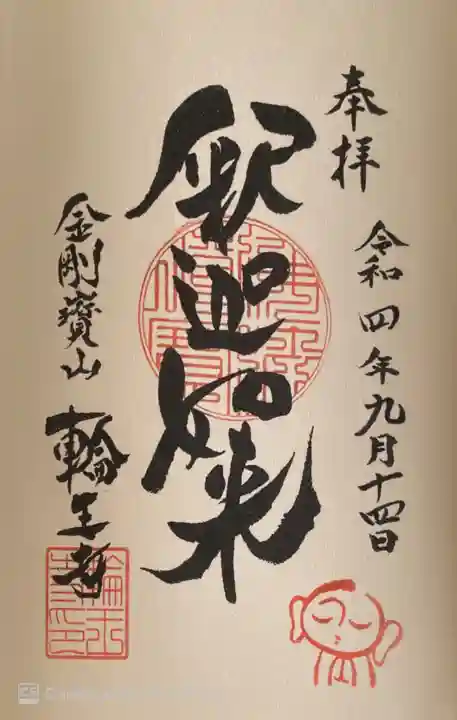 奉拝
令和四年九月十四日
釈迦如来
金剛寶山
輪王寺
CS CamScanner